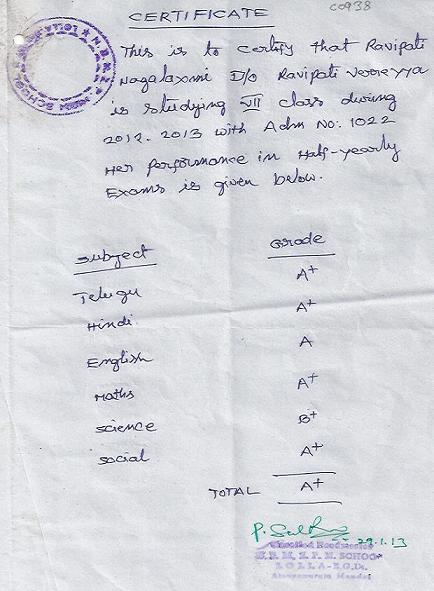 C0938
CERTIFICATE
This is to certify that Ravipati
Nagalaxmi D/o Ravipati Verreyya
is studying VII class during
2012-2013 with Adm No: 1022
Her performance in Half-yearly
Exams is given below.
Subject Grade
Telugu A+
Hindi A+
English A
Maths A+
Science B+
Social A+
TOTAL A+
29.1.13
SCHOOL
Mandal